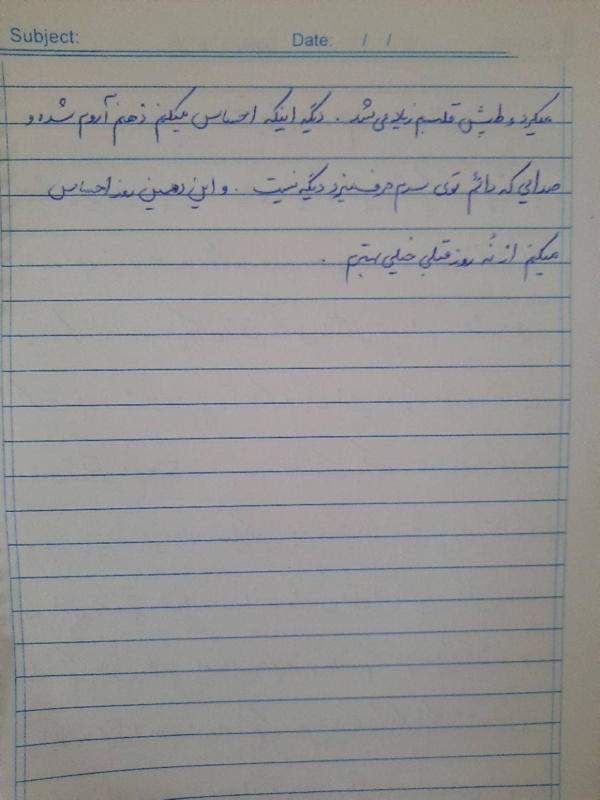 Subject:
Date: / /
میکرد و طپش قلبم زیاد می شد . دیگه اینکه احساس میکنم ذهنم آروم شده و
صدایی که دائم توی سرم حرف میزد دیگه نیست . و این دهمین روز احساس
میکنم از نُه روز قبلی خیلی بهترم .